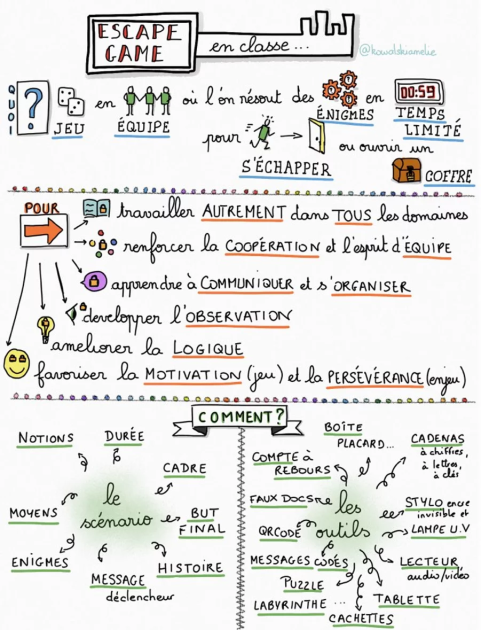 ESCAPE GAME
en classe...
@kowalskiamelie
QUOI ? JEU en ÉQUIPE où l'on résout des ÉNIGMES en 00:59 TEMPS LIMITÉ
pour S'ÉCHAPPER ou ouvrir un COFFRE
POUR
travailler AUTREMENT dans TOUS les domaines
renforcer la COOPÉRATION et l'esprit d'ÉQUIPE
apprendre à COMMUNIQUER et s'ORGANISER
développer l'OBSERVATION
améliorer la LOGIQUE
favoriser la MOTIVATION (jeu) et la PERSÉVÉRANCE (enjeu)
COMMENT?
le scénario
NOTIONS
DURÉE
CADRE
BUT FINAL
HISTOIRE
MESSAGE
déclencheur
ENIGMES
MOYENS
les outils
BOÎTE
PLACARD...
CADENAS
à chiffres,
à lettres,
à clés
STYLO encre
invisible et
LAMPE U.V
LECTEUR
audio/vidéo
TABLETTE
CACHETTES
LABYRINTHE ...
PUZZLE
MESSAGES CODÉS
QRCODE
FAUX DOCS
COMPTE à
REBOURS